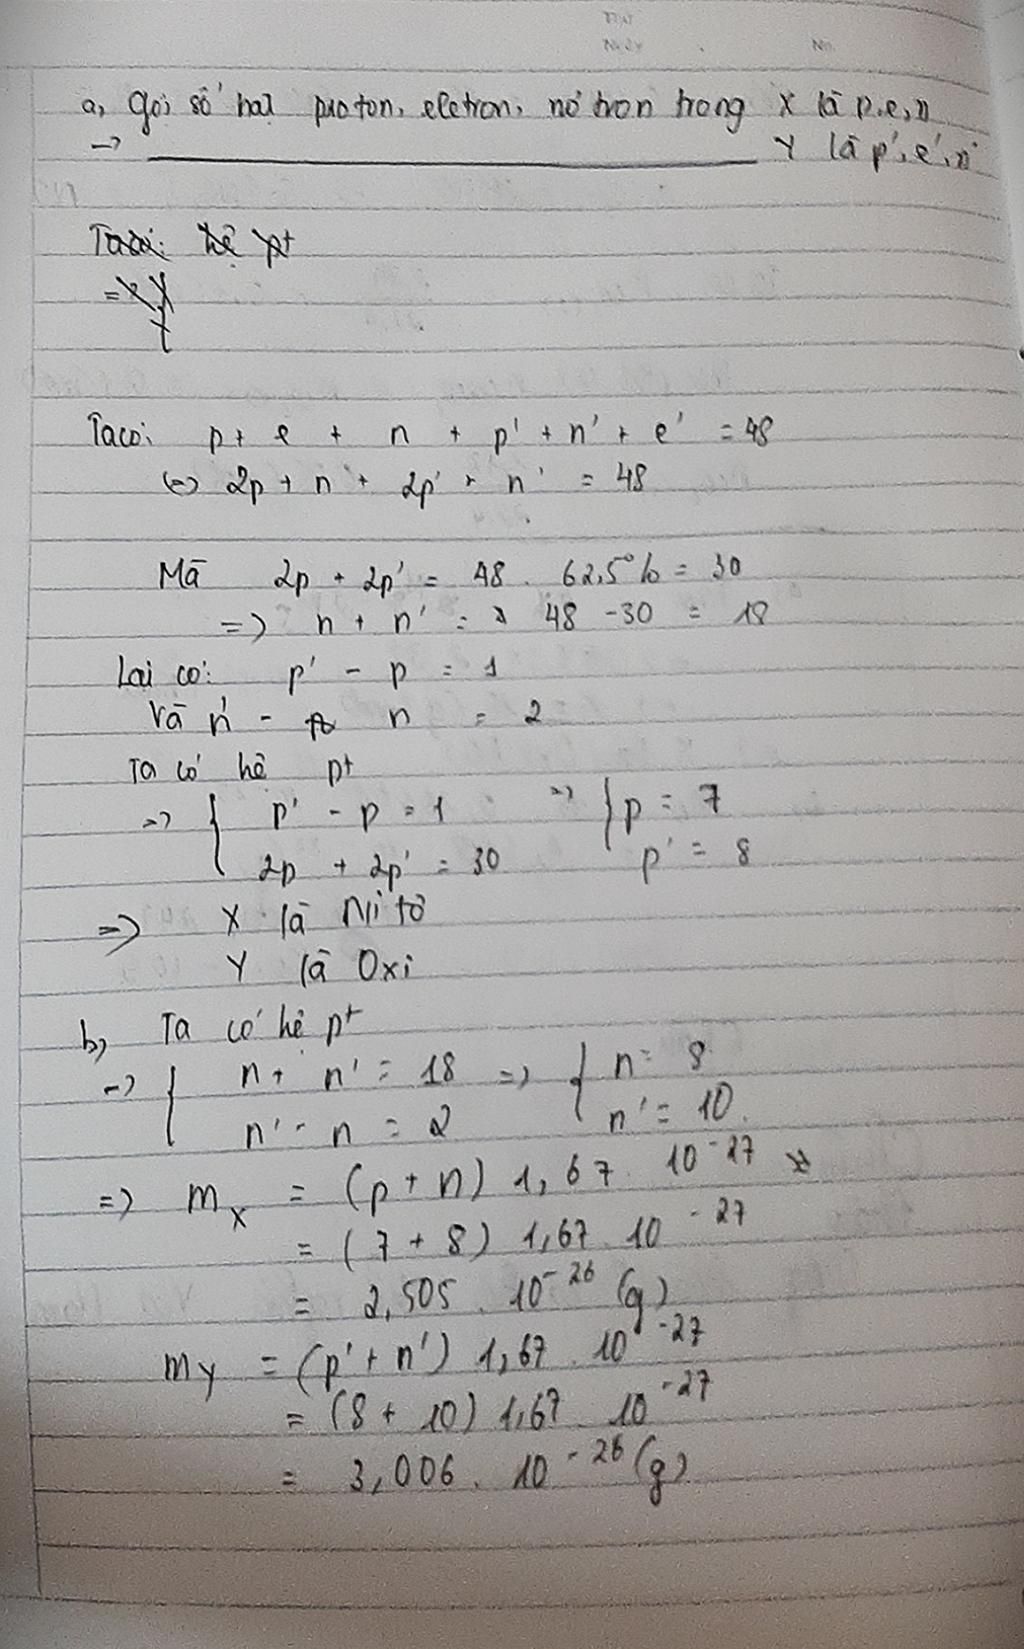 a, Gọi số hạt proton, eletron, nơtron trong X là p,e,n
→ Y là p', e', n'
Ta có: hệ pt
Ta có: p + e + n + p' + n' + e' = 48
(=) 2p + n + 2p' + n' = 48
Mà 2p + 2p' = 48 . 62,5% = 30
=> n + n' = 48 - 30 = 18
Lại có: p' - p = 1
Và n' - n = 2
Ta có hệ pt
=> { p' - p = 1 => { p = 7
2p + 2p' = 30 p' = 8
=> X là Nitơ
Y là Oxi
b, Ta có hệ pt
=> { n + n' = 18 => { n = 8
n' - n = 2 n' = 10.
=> mX = (p + n) 1,67 . 10^-27
= (7 + 8) 1,67 . 10^-27
= 2,505 . 10^-26 (g)
mY = (p' + n') 1,67 . 10^-27
= (8 + 10) 1,67 . 10^-27
= 3,006 . 10^-26 (g)